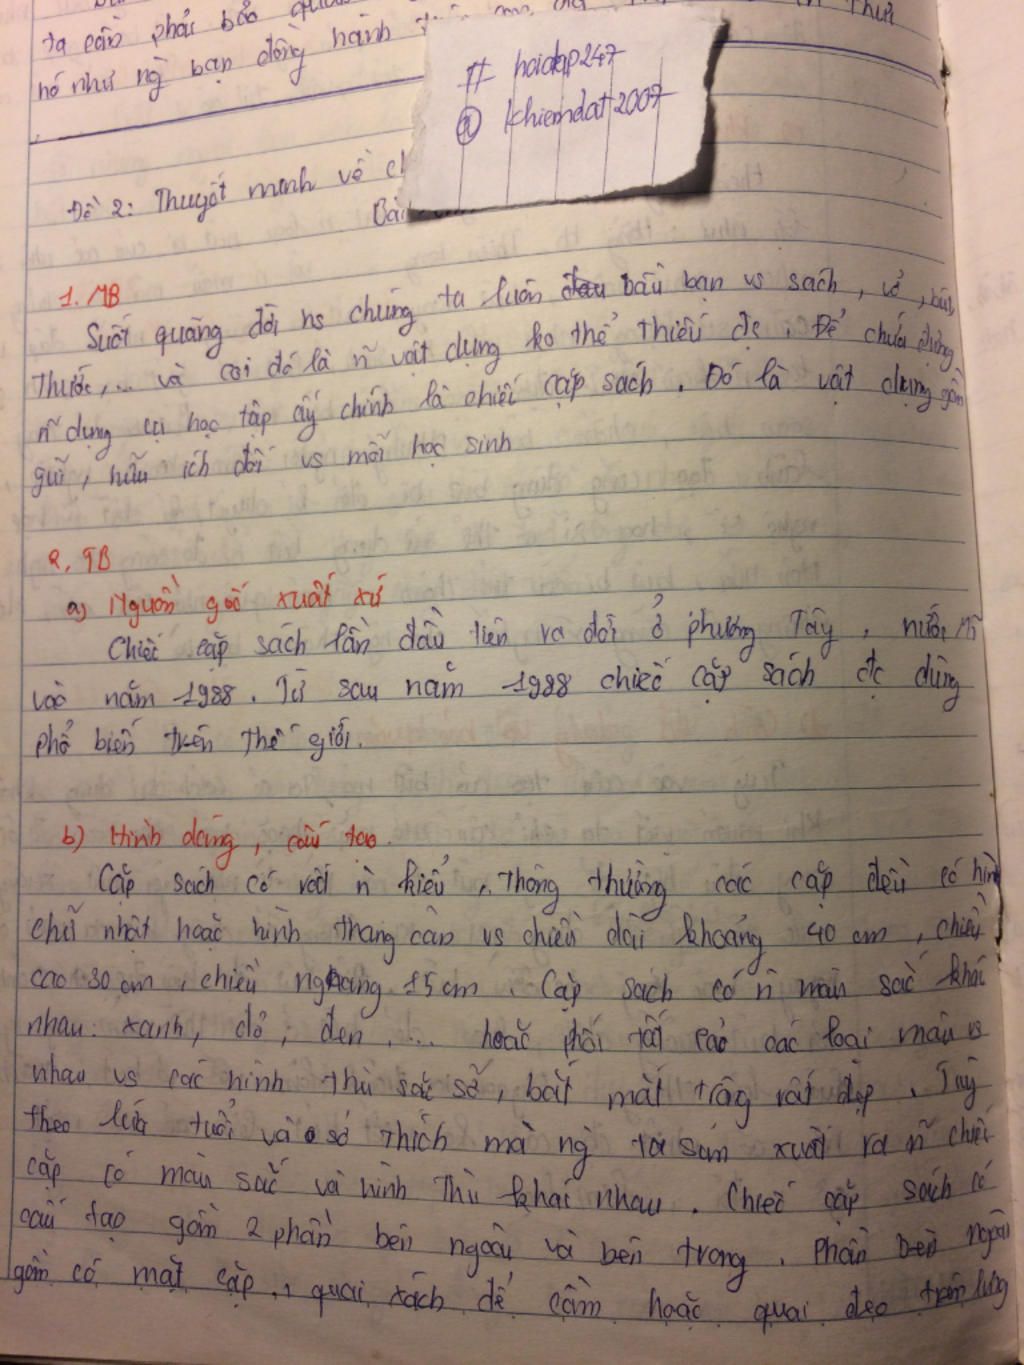 ta cần phải bảo
hó như ng̀ bạn đồng hành
# hoidap247
@ khiemdat2007
Đề 2: Thuyết minh về
Bài
1. MB
Suốt quãng đời hs chúng ta luôn bầu bạn vs sách, vở, bút,
Thước,... và coi đó là n̄ vật dụng ko thể thiếu đc. Để chứa đựng
n̄ dụng cụ học tập ấy chính là chiếc cặp sách. Đó là vật dụng gần
gũi, hữu ích đối vs mỗi học sinh
2, TB
a) Nguồn gốc xuất xứ
Chiếc cặp sách lần đầu tiên ra đời ở phương Tây, nước Mĩ
vào năm 1988. Từ sau năm 1988 chiếc cặp sách đc dùng
phổ biến trên thế giới.
b) Hình dáng, cấu tạo.
Cặp sách có rất ǹ kiểu, thông thường các cặp đều có hình
chữ nhật hoặc hình thang cân vs chiều dài khoảng 40 cm, chiều
cao 30 cm, chiều ngang 15 cm. Cặp sách có ǹ màu sắc khác
nhau: xanh, đỏ, đen,... hoặc phối tất cả các loại màu vs
nhau vs các hình thù sặc sỡ, bắt mắt trông rất đẹp. Tùy
theo lứa tuổi và sở thích mà ng̀ ta sản xuất ra n̄ chiếc
cặp có màu sắc và hình thù khác nhau. Chiếc cặp sách có
cấu tạo gồm 2 phần bên ngoài và bên trong. Phần bên ngoài
gồm có mặt cặp, quai xách để cầm hoặc quai đeo trên lưng